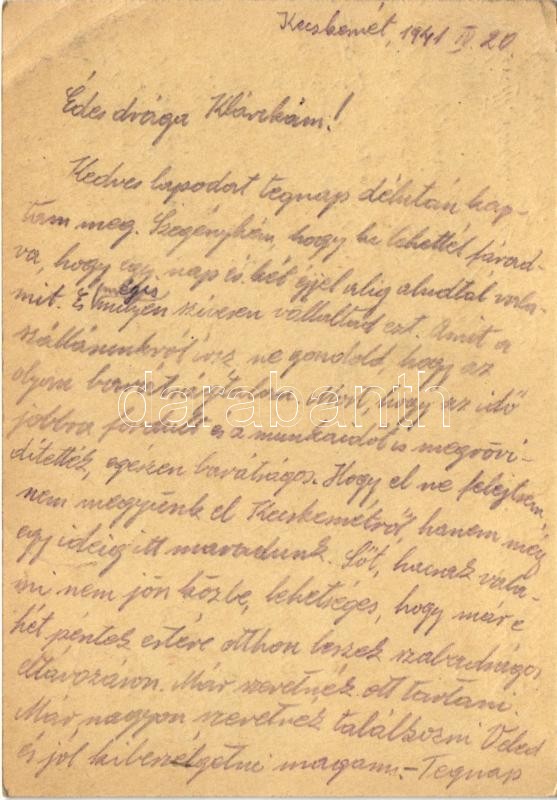 Kecskemét, 1941 IV. 20.
Édes drága Klárikám!
Kedves lapodat tegnap délután kap-
tam meg. Szegénykém, hogy ki lehettél fárad-
va, hogy egy nap és két éjjel alig aludtál vala-
mit. És mégis milyen szívesen vállaltad ezt. Amit a
szállásunkról írsz, ne gondold, hogy az
olyan barátságtalan, most, hogy az idő
jobbra fordult és a munkaidőt is megrövi-
dítették, egészen barátságos. Hogy el ne felejtsem,
nem megyünk el Kecskemétről, hanem még
egy ideig itt maradunk. Sőt, hacsak vala-
mi nem jön közbe, lehetséges, hogy már e
hét péntek estére otthon leszek szabadságos
eltávozáson. Már szeretnék ott tartani.
Már nagyon szeretnék találkozni Veled
és jól kibeszélgetni magam. - Tegnap
darabanth